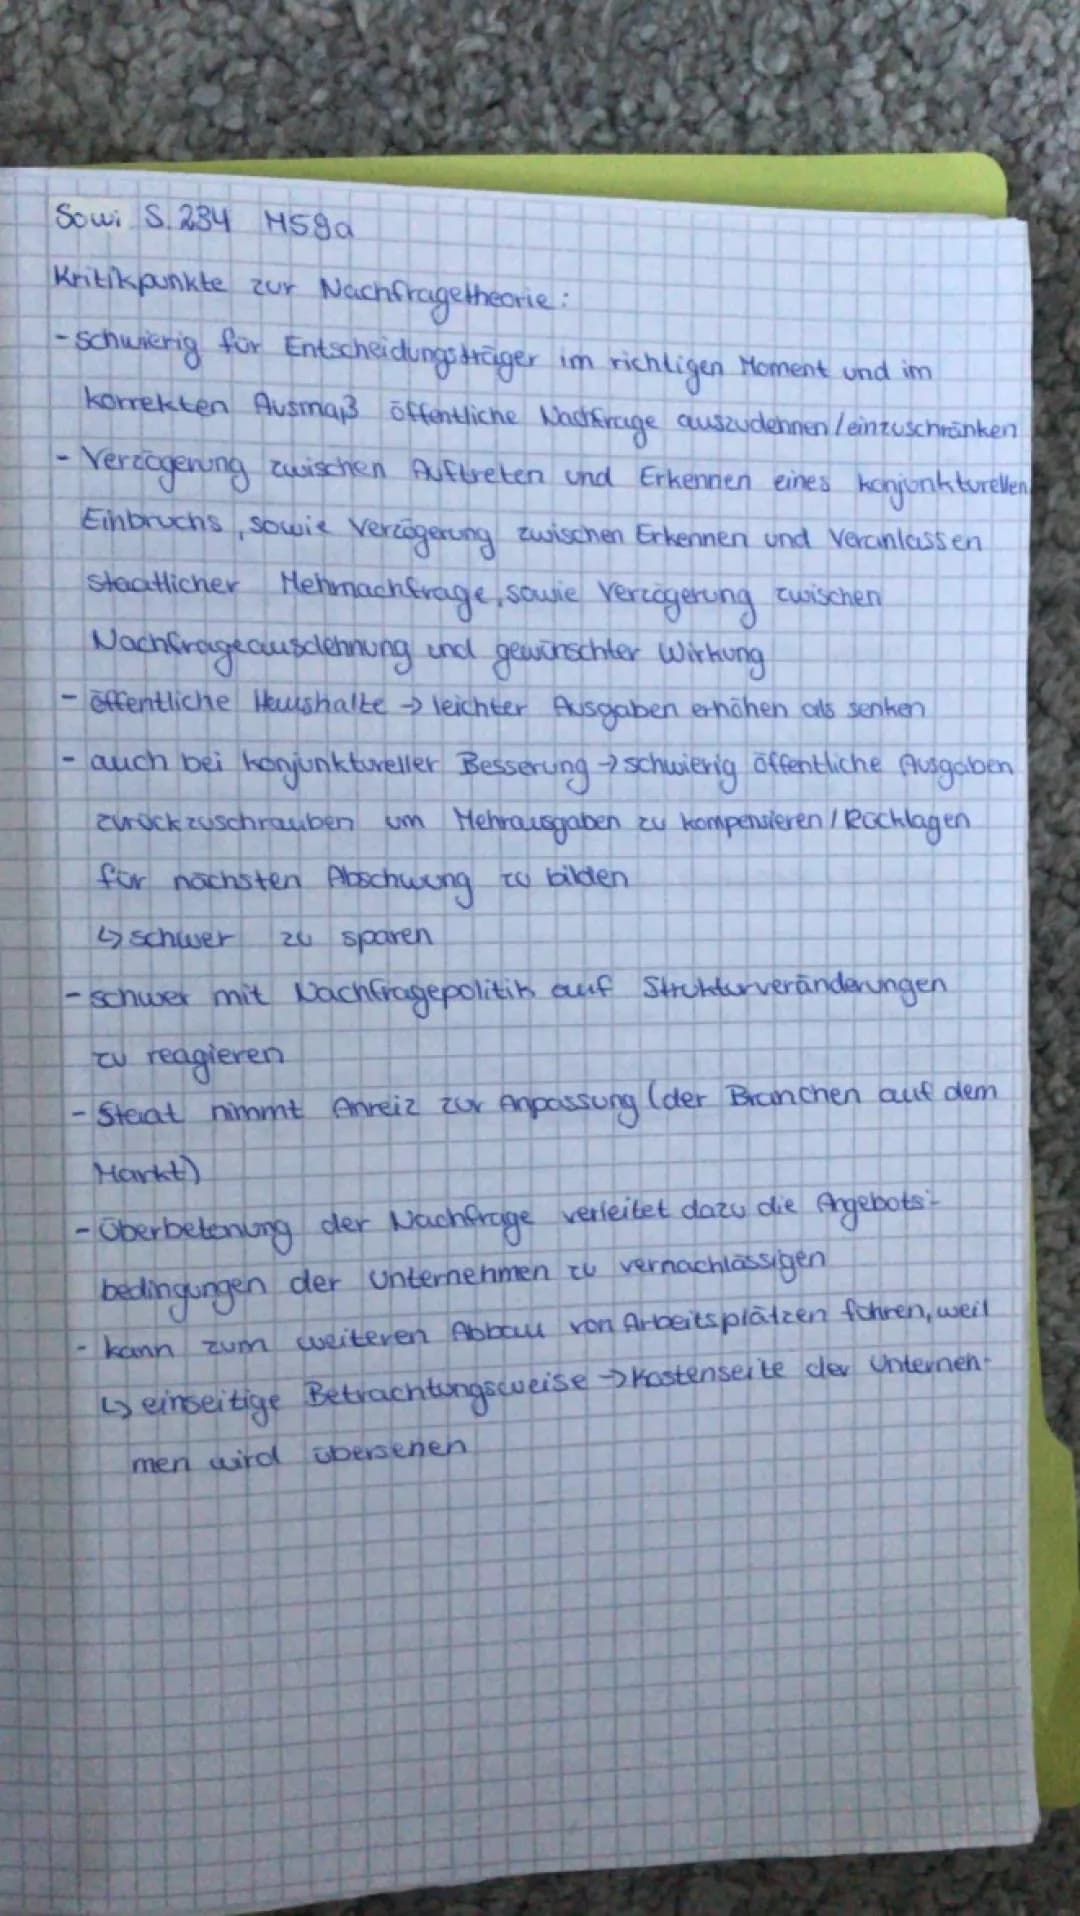 Sowi S. 234 M59a
Kritikpunkte zur Nachfragetheorie:
- schwierig für Entscheidungsträger im richtigen Moment und im
korrekten Ausmaß öffentliche Nachfrage auszudehnen/einzuschränken
- Verzögerung zwischen Auftreten und Erkennen eines konjunkturellen
Einbruchs, sowie Verzögerung zwischen Erkennen und Veranlassen
staatlicher Mehrnachfrage, sowie Verzögerung zwischen
Nachfrageausdehnung und gewünschter Wirkung
- öffentliche Haushalte → leichter Ausgaben erhöhen als senken
- auch bei konjunktureller Besserung → schwierig öffentliche Ausgaben
zurückzuschrauben um Mehrausgaben zu kompensieren / Rücklagen
für nächsten Abschwung zu bilden
↳ schwer zu sparen
- schwer mit Nachfragepolitik auf Strukturveränderungen
zu reagieren
- Staat nimmt Anreiz zur Anpassung (der Branchen auf dem
Markt)
- Überbetonung der Nachfrage verleitet dazu die Angebots-
bedingungen der Unternehmen zu vernachlässigen
- kann zum weiteren Abbau von Arbeitsplätzen führen, weil
↳ einseitige Betrachtungsweise → Kostenseite der Unterneh-
men wird übersehen